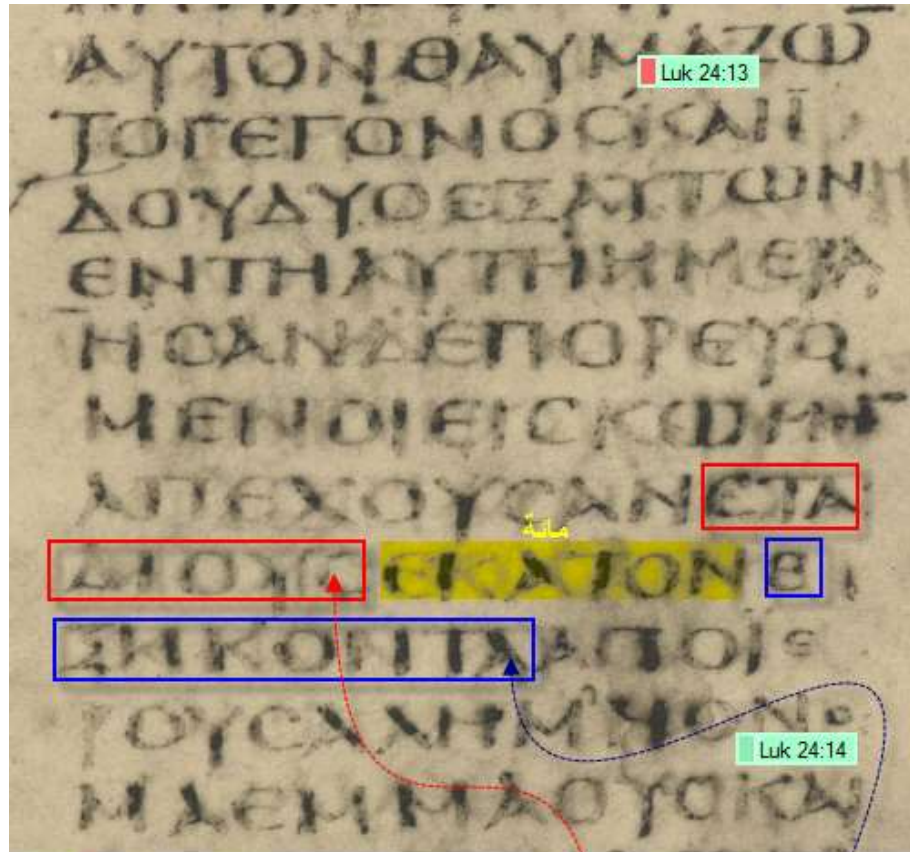 ΑΥΤΟΝΘΑΥΜΑΖΩ
Luk 24:13
ΤΟΓΕΓΟΝΟϹΚΑΙΪ
ΔΟΥΔΥΟΕΞΑΥΤΩΝΗ
ΕΝΤΗΑΥΤΗΗΜΕΡΑ
ΗϹΑΝΔΕΠΟΡΕΥΟ
ΜΕΝΟΙΕΙϹΚΩΜΗ
ΑΠΕΧΟΥϹΑΝϹΤΑ
مائة
ΔΙΟΥϹ ΕΚΑΤΟΝ Ε
ΞΗΚΟΝΤΑΑΠΟΙΕ
ΡΟΥϹΑΛΗΜΗΟΝΟ
Luk 24:14
ΜΑΕΜΜΑΟΥϹΚΑΙ